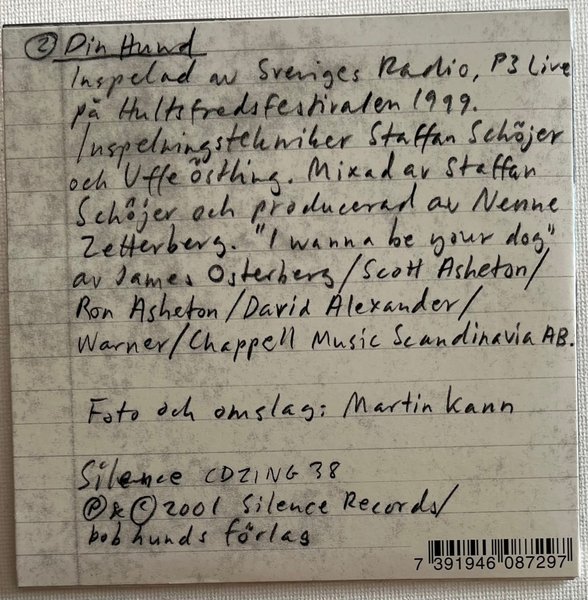 ② Din Hund
Inspelad av Sveriges Radio, P3 Live
på Hultsfredsfestivalen 1999.
Inspelningstekniker Staffan Schöjer
och Uffe Östling. Mixad av Staffan
Schöjer och producerad av Nenne
Zetterberg. "I wanna be your dog"
av James Osterberg/Scott Asheton/
Ron Asheton/David Alexander/
Warner/Chappell Music Scandinavia AB.
Foto och omslag: Martin Kann
Silence CDZING 38
Ⓟ & © 2001 Silence Records/
bob hunds förlag
7 391946 087297